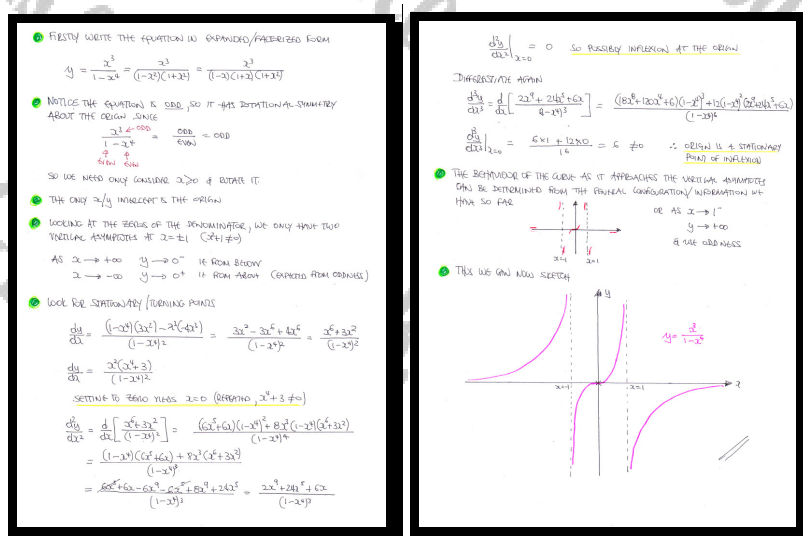 FIRSTLY WRITE THE EQUATION IN EXPANDED/FACTORIZED FORM
y = x³/(1-x⁴) = x³/((1-x²)(1+x²)) = x³/((1-x)(1+x)(1+x²))
NOTICE THE EQUATION IS ODD, SO IT HAS ROTATIONAL SYMMETRY
ABOUT THE ORIGIN SINCE
x³/(1-x⁴) ← ODD = ODD/EVEN = ODD
↑ ↑
EVEN EVEN
SO WE NEED ONLY CONSIDER x≥0 & ROTATE IT.
THE ONLY x/y INTERCEPT IS THE ORIGIN
LOOKING AT THE ZEROS OF THE DENOMINATOR, WE ONLY HAVE TWO
VERTICAL ASYMPTOTES AT x=±1 (x²+1≠0)
AS x→+∞ y→0⁻ IE FROM BELOW
x→-∞ y→0⁺ IE FROM ABOVE (EXPECTED FROM ODDNESS)
LOOK FOR STATIONARY/TURNING POINTS
dy/dx = ((1-x⁴)(3x²)-x³(-4x³))/(1-x⁴)² = (3x²-3x⁶+4x⁶)/(1-x⁴)² = (x⁶+3x²)/(1-x⁴)²
dy/dx = x²(x⁴+3)/(1-x⁴)²
SETTING TO ZERO YIELDS x=0 (REPEATED, x⁴+3≠0)
d²y/dx² = d/dx[(x⁶+3x²)/(1-x⁴)²] = ((6x⁵+6x)(1-x⁴)²+8x³(1-x⁴)(x⁶+3x²))/(1-x⁴)⁴
= ((1-x⁴)(6x⁵+6x)+8x³(x⁶+3x²))/(1-x⁴)³
= (6x⁵+6x-6x⁹-6x⁵+8x⁹+24x⁵)/(1-x⁴)³ = (2x⁹+24x⁵+6x)/(1-x⁴)³
d²y/dx²|x=0 = 0 SO POSSIBLY INFLEXION AT THE ORIGIN
DIFFERENTIATE AGAIN
d³y/dx³ = d/dx[(2x⁹+24x⁵+6x)/(1-x⁴)³] = ((18x⁸+120x⁴+6)(1-x⁴)³+12(1-x⁴)²(2x⁹+24x⁵+6x))/(1-x⁴)⁶
d³y/dx³|x=0 = (6×1+12×0)/1⁶ = 6 ≠0 ∴ ORIGIN IS A STATIONARY
POINT OF INFLEXION
THE BEHAVIOUR OF THE CURVE AS IT APPROACHES THE VERTICAL ASYMPTOTES
CAN BE DETERMINED FROM THE GENERAL CONFIGURATION/INFORMATION WE
HAVE SO FAR
OR AS x→1⁻
y→+∞
& USE ODDNESS
x=-1 x=1
THUS WE CAN NOW SKETCH
y
y = x³/(1-x⁴)
x=-1 x=1 x